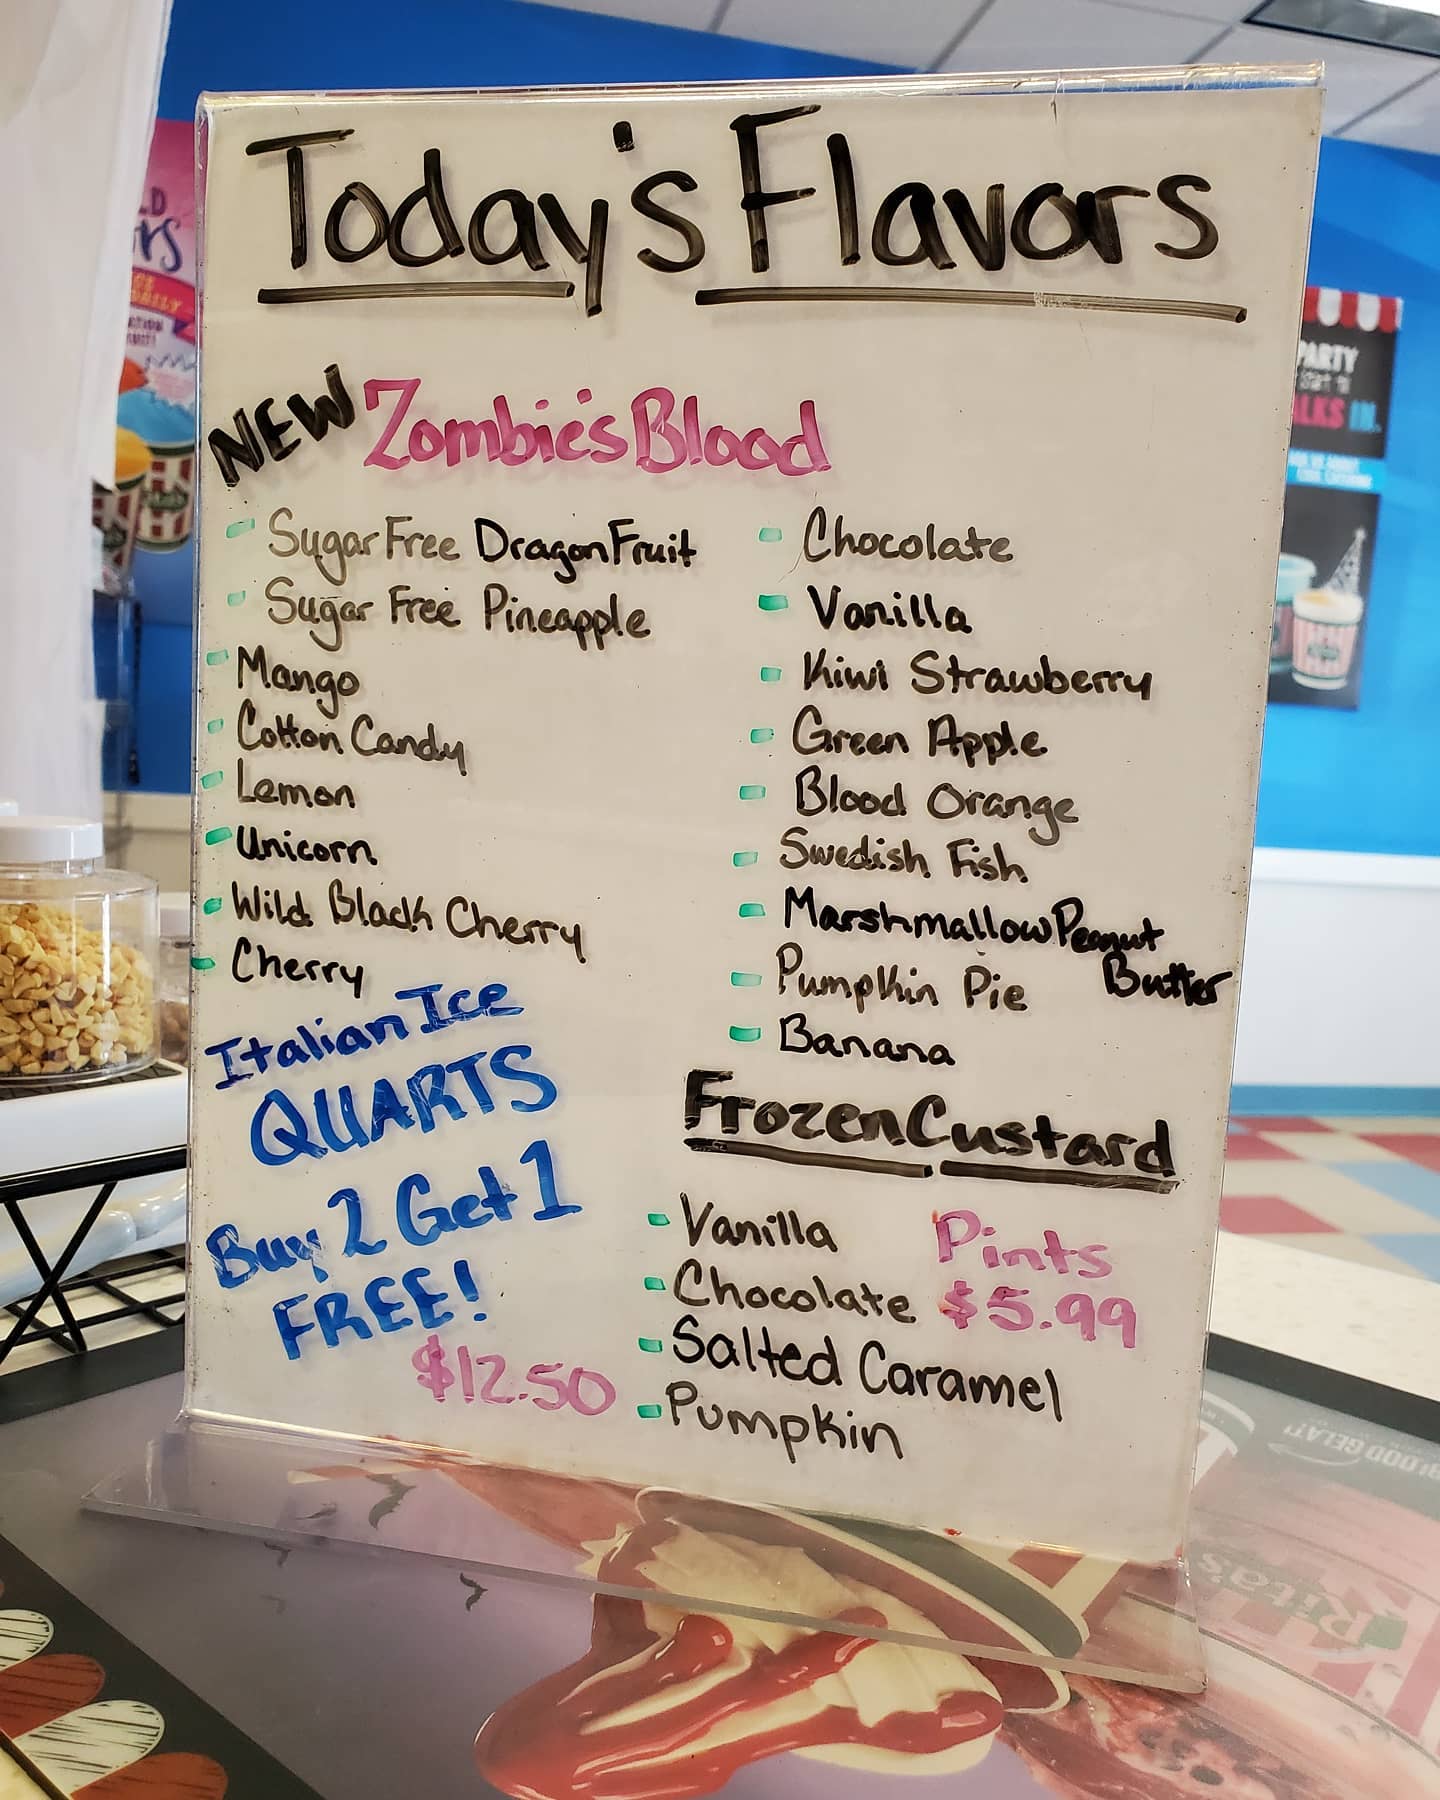 Today's Flavors
NEW Zombie's Blood
Sugar Free Dragon Fruit
Sugar Free Pineapple
Mango
Cotton Candy
Lemon
Unicorn
Wild Black Cherry
Cherry
Chocolate
Vanilla
Kiwi Strawberry
Green Apple
Blood Orange
Swedish Fish
Marshmallow Peanut
Butter
Pumpkin Pie
Banana
Italian Ice
QUARTS
Buy 2 Get 1
FREE!
$12.50
Frozen Custard
Vanilla
Chocolate
Salted Caramel
Pumpkin
Pints
$5.99
PARTY
IN.
BLOOD GELATI
Rita's